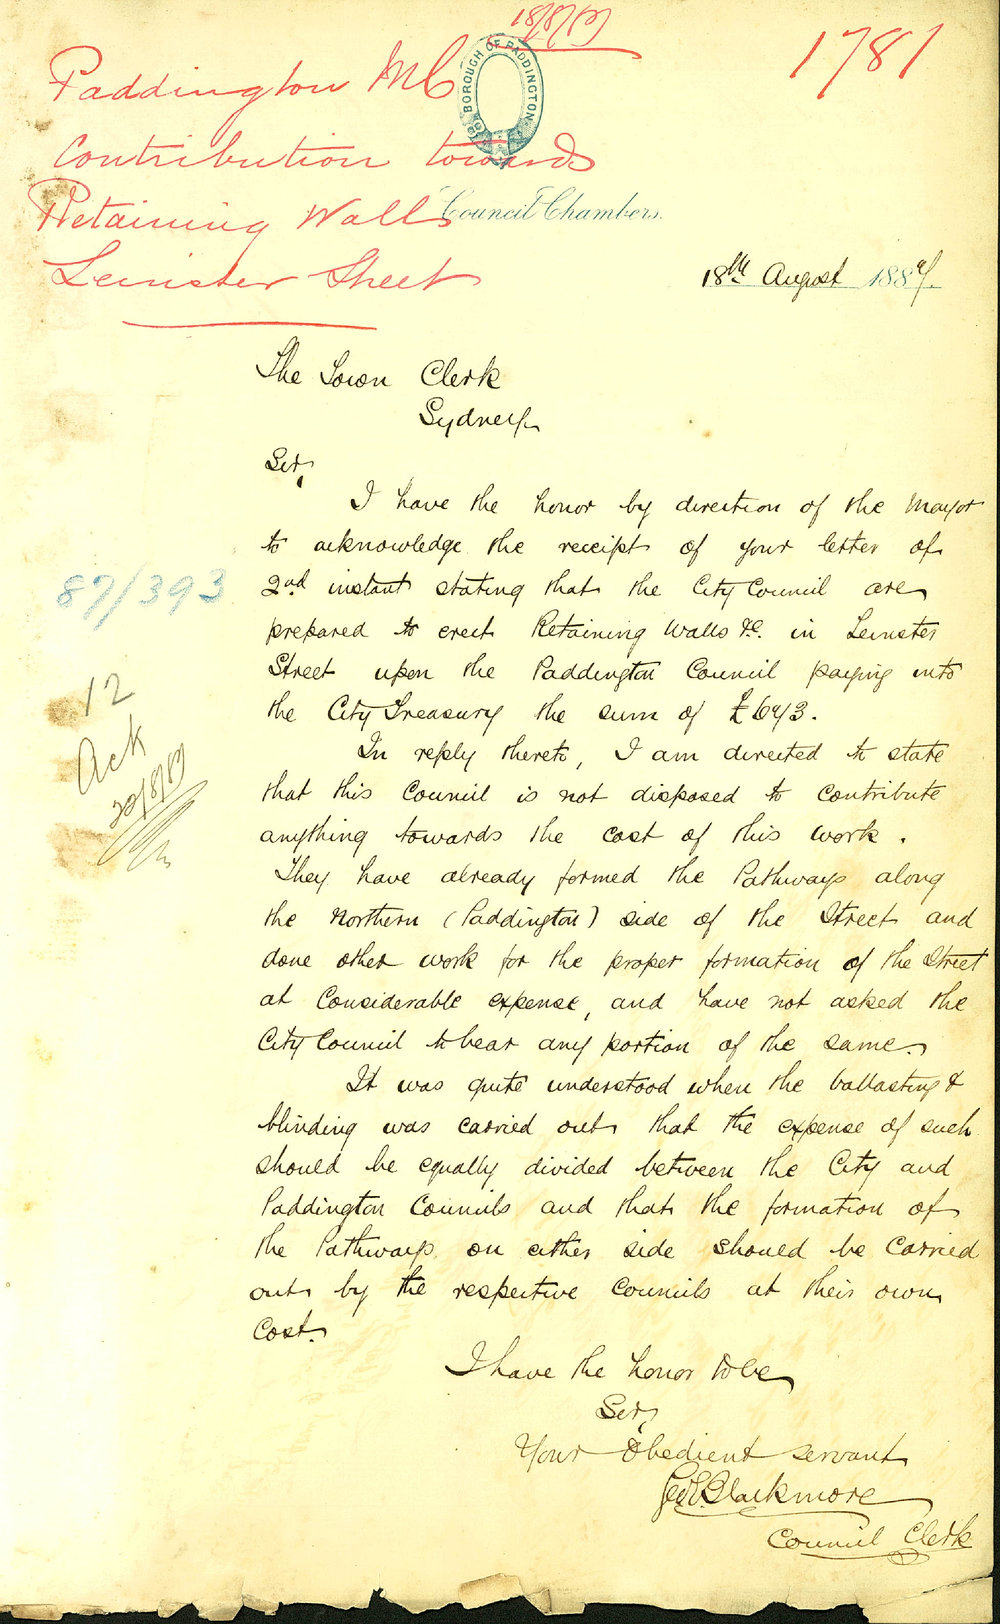 18/8/87
1781
Paddington M C
BOROUGH OF PADDINGTON
Contribution towards
Retaining Walls
Leinster Street
Council Chambers.
18th August 1887.
The Town Clerk
Sydney
Sir,
I have the honor by direction of the Mayor
to acknowledge the receipt of your letter of
2nd instant stating that the City Council are
prepared to erect Retaining Walls &c. in Leinster
Street upon the Paddington Council paying into
the City Treasury the sum of £643.
In reply thereto, I am directed to state
that this Council is not disposed to contribute
anything towards the cost of this work.
They have already formed the Pathways along
the Northern (Paddington) side of the Street and
done other work for the proper formation of the Street
at Considerable expense, and have not asked the
City Council to bear any portion of the same.
It was quite understood when the ballasting &
blinding was carried out that the expense of such
should be equally divided between the City and
Paddington Councils and that the formation of
the Pathways on either side should be Carried
out by the respective Councils at their own
Cost.
I have the honor to be
Sir,
Your Obedient servant
Geo E. Blackmore
Council Clerk
87/393
12
Ack
20/8/87